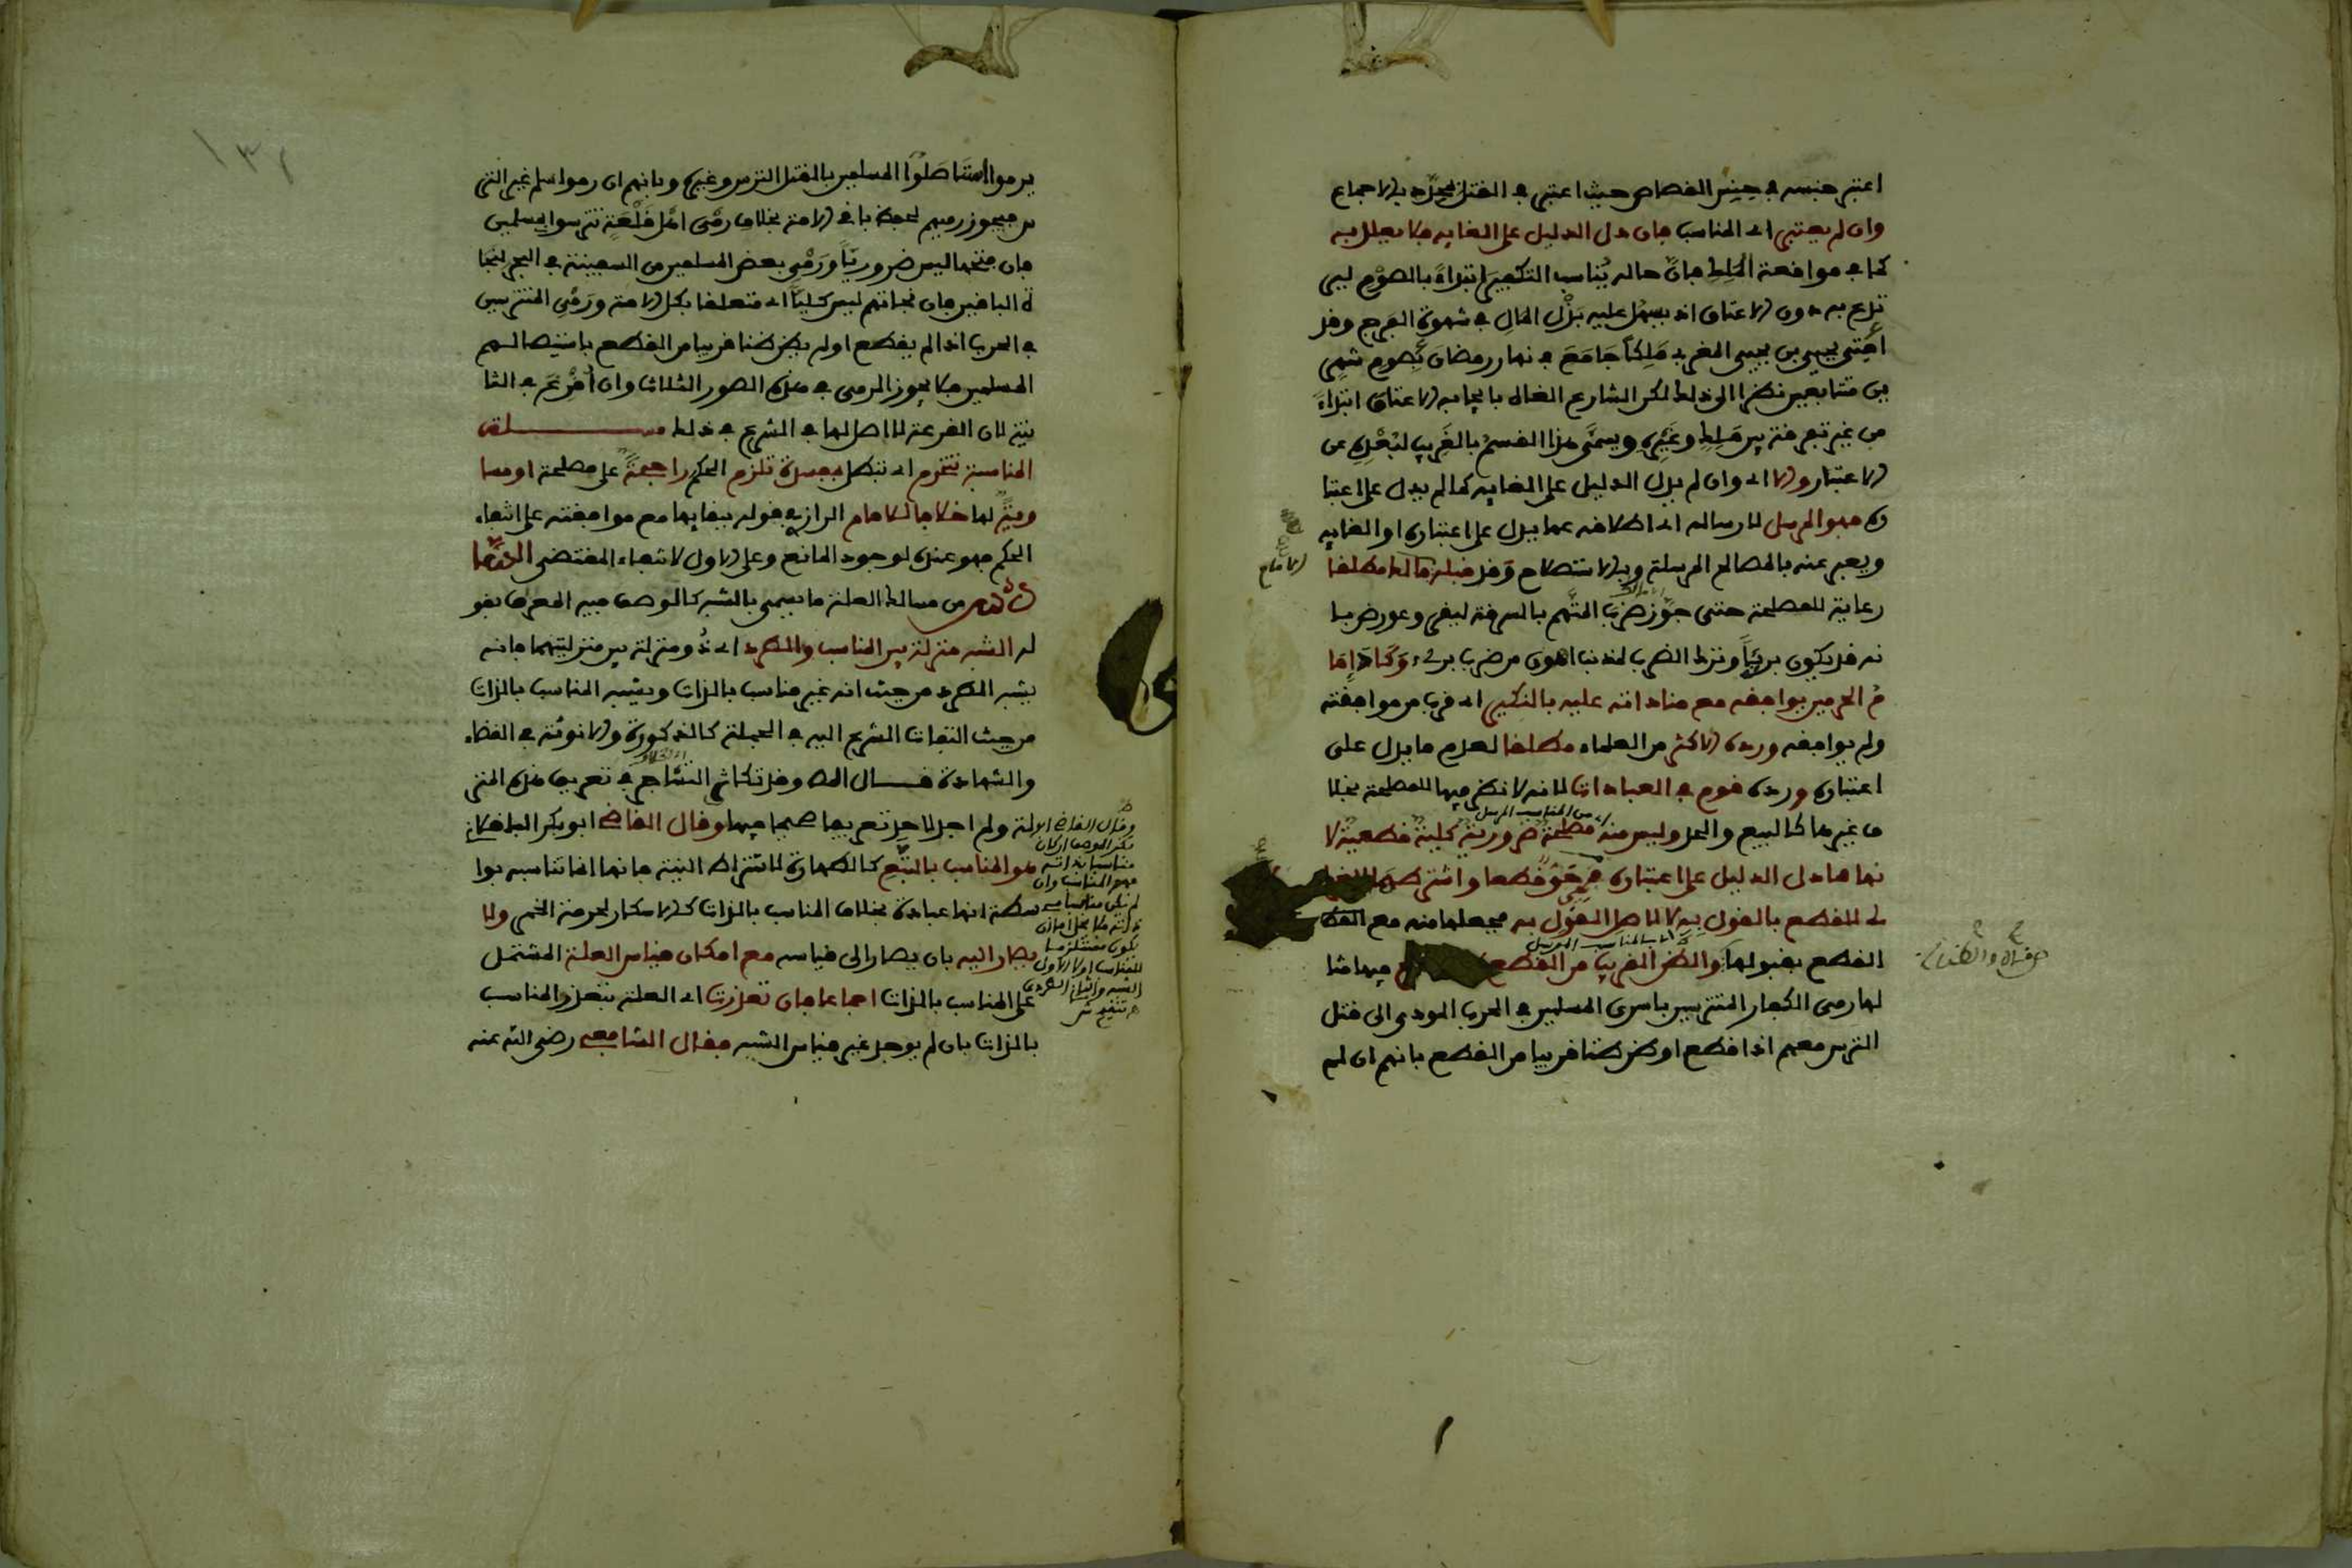 اعتبر جنسه في جنس القصاص حيث اعتبر في القتل بمحدد بالاجماع
وان لم يعتبر اي المناسب فان دل الدليل على الغايه فلا يعلل به
كما في مواقعة الملك فان حاله يناسب التكفير ابتداء بالصوم لير
تدع به دون الاعتاق اذ يسهل عليه بذل المال في شهوة الفرج وقد
افتى يحيى بن يحيى المغربي ملكا جامع في نهار رمضان بصوم شهر
ين متتابعين نظرا الى ذلك لكن الشارع الغاه بايجابه الاعتاق ابتداء
من غير تفرقة بين ملك وغيره ويسمى هذا القسم بالغريب لبعده عن
الاعتبار والا اي وان لم يدل الدليل على الغايه كما لم يدل على اعتبا
ره فهو المرسل لارساله اي اطلاقه عما يدل على اعتباره او الغايه
ويعبر عنه بالمصالح المرسلة وبالاستصلاح وقد قبله مالك مطلقا
رعاية للمصلحة حتى جوز ضرب المتهم بالسرقة ليقر وعورض با
نه قد يكون بريا وترك الضرب لمذنب اهون من ضرب بريء وكاد اما
م الحرمين يوافقه مع مناداته عليه بالنكير اي قرب من موافقته
ولم يوافقه ورده الاكثر من العلماء مطلقا لعدم ما يدل على
اعتباره ورده قوم في العبادات لانه لا نظر فيها للمصلحة بخلا
ف غيرها كالبيع والحد وليس منه مصلحة ضرورية كلية قطعية لا
اي من المناسب المرسل
نها مما دل الدليل على اعتباره فهي حق قطعا واشترطها الغزا
لي للقطع بالقول به لا لاصل القول به فجعلها منه مع القطع
القطع بقبولها قال والظن القريب من القطع فيها مثا
لها رمي الكفار المتترسين باسرى المسلمين في الحرب المودي الى قتل
الترس معهم اذا قطع او ظن ظنا قريبا من القطع بانهم ان لم
الامام
١٣٢
يرموا استاصلوا المسلمين بالقتل الترس وغيره وبانهم ان رموا سلم غير التر
س فيجوز رميهم لحفظ باقي الامة بخلاف رمي اهل قلعة تترسوا بمسلمين
فان فتحها ليس ضروريا ورمي بعض المسلمين من السفينة في البحر لنجا
ة الباقين فان نجاتهم ليس كليا اي متعلقا بكل الامة ورمي المتترسين
في الحرب اذا لم يقطع او لم يظن ظنا قريبا من القطع باستيصالهم
المسلمين فلا يجوز الرمي في هذه الصور الثلاث وان اقرع في الثا
نية لان القرعة لا اصل لها في الشرع في ذلك مسلة
المناسبة تنخرم اي تبطل بمفسدة تلزم الحكم راجحة على مصلحة او مسا
وية لها خلافا للامام الرازي في قوله ببقايها مع موافقته على انتفاء
الحكم فهو عنده لوجود المانع وعلى الاول لانتفاء المقتضى
السادس من مسالك العلة ما يسمى بالشبه كالوصف فيه المعرف بقو
له الشبه منزلة بين المناسب والطرد اي ذو منزلة بين منزلتيهما فانه
يشبه الطرد من حيث انه غير مناسب بالذات ويشبه المناسب بالذات
من حيث التفات الشرع اليه في الجملة كالذكورة والانوثة في القضاء
والشهادة قال المص وقد تكاثر التشاجر في تعريف هذه المنز
لة ولم اجد لاحد تعريفا صحيحا فيها وقال القاضي ابو بكر الباقلاني
هو المناسب بالتبع كالطهارة لاشتراط النية فانها انما تناسبه بوا
سطة انها عبادة بخلاف المناسب بالذات كالاسكار لحرمة الخمر ولا
يصار اليه بان يصار الى قياسه مع امكان قياس العلة المشتمل
على المناسب بالذات اجماعا فان تعذرت اي العلة بتعذر المناسب
بالذات بان لم يوجد غير قياس الشبه فقال الشافعي رضي الله عنه